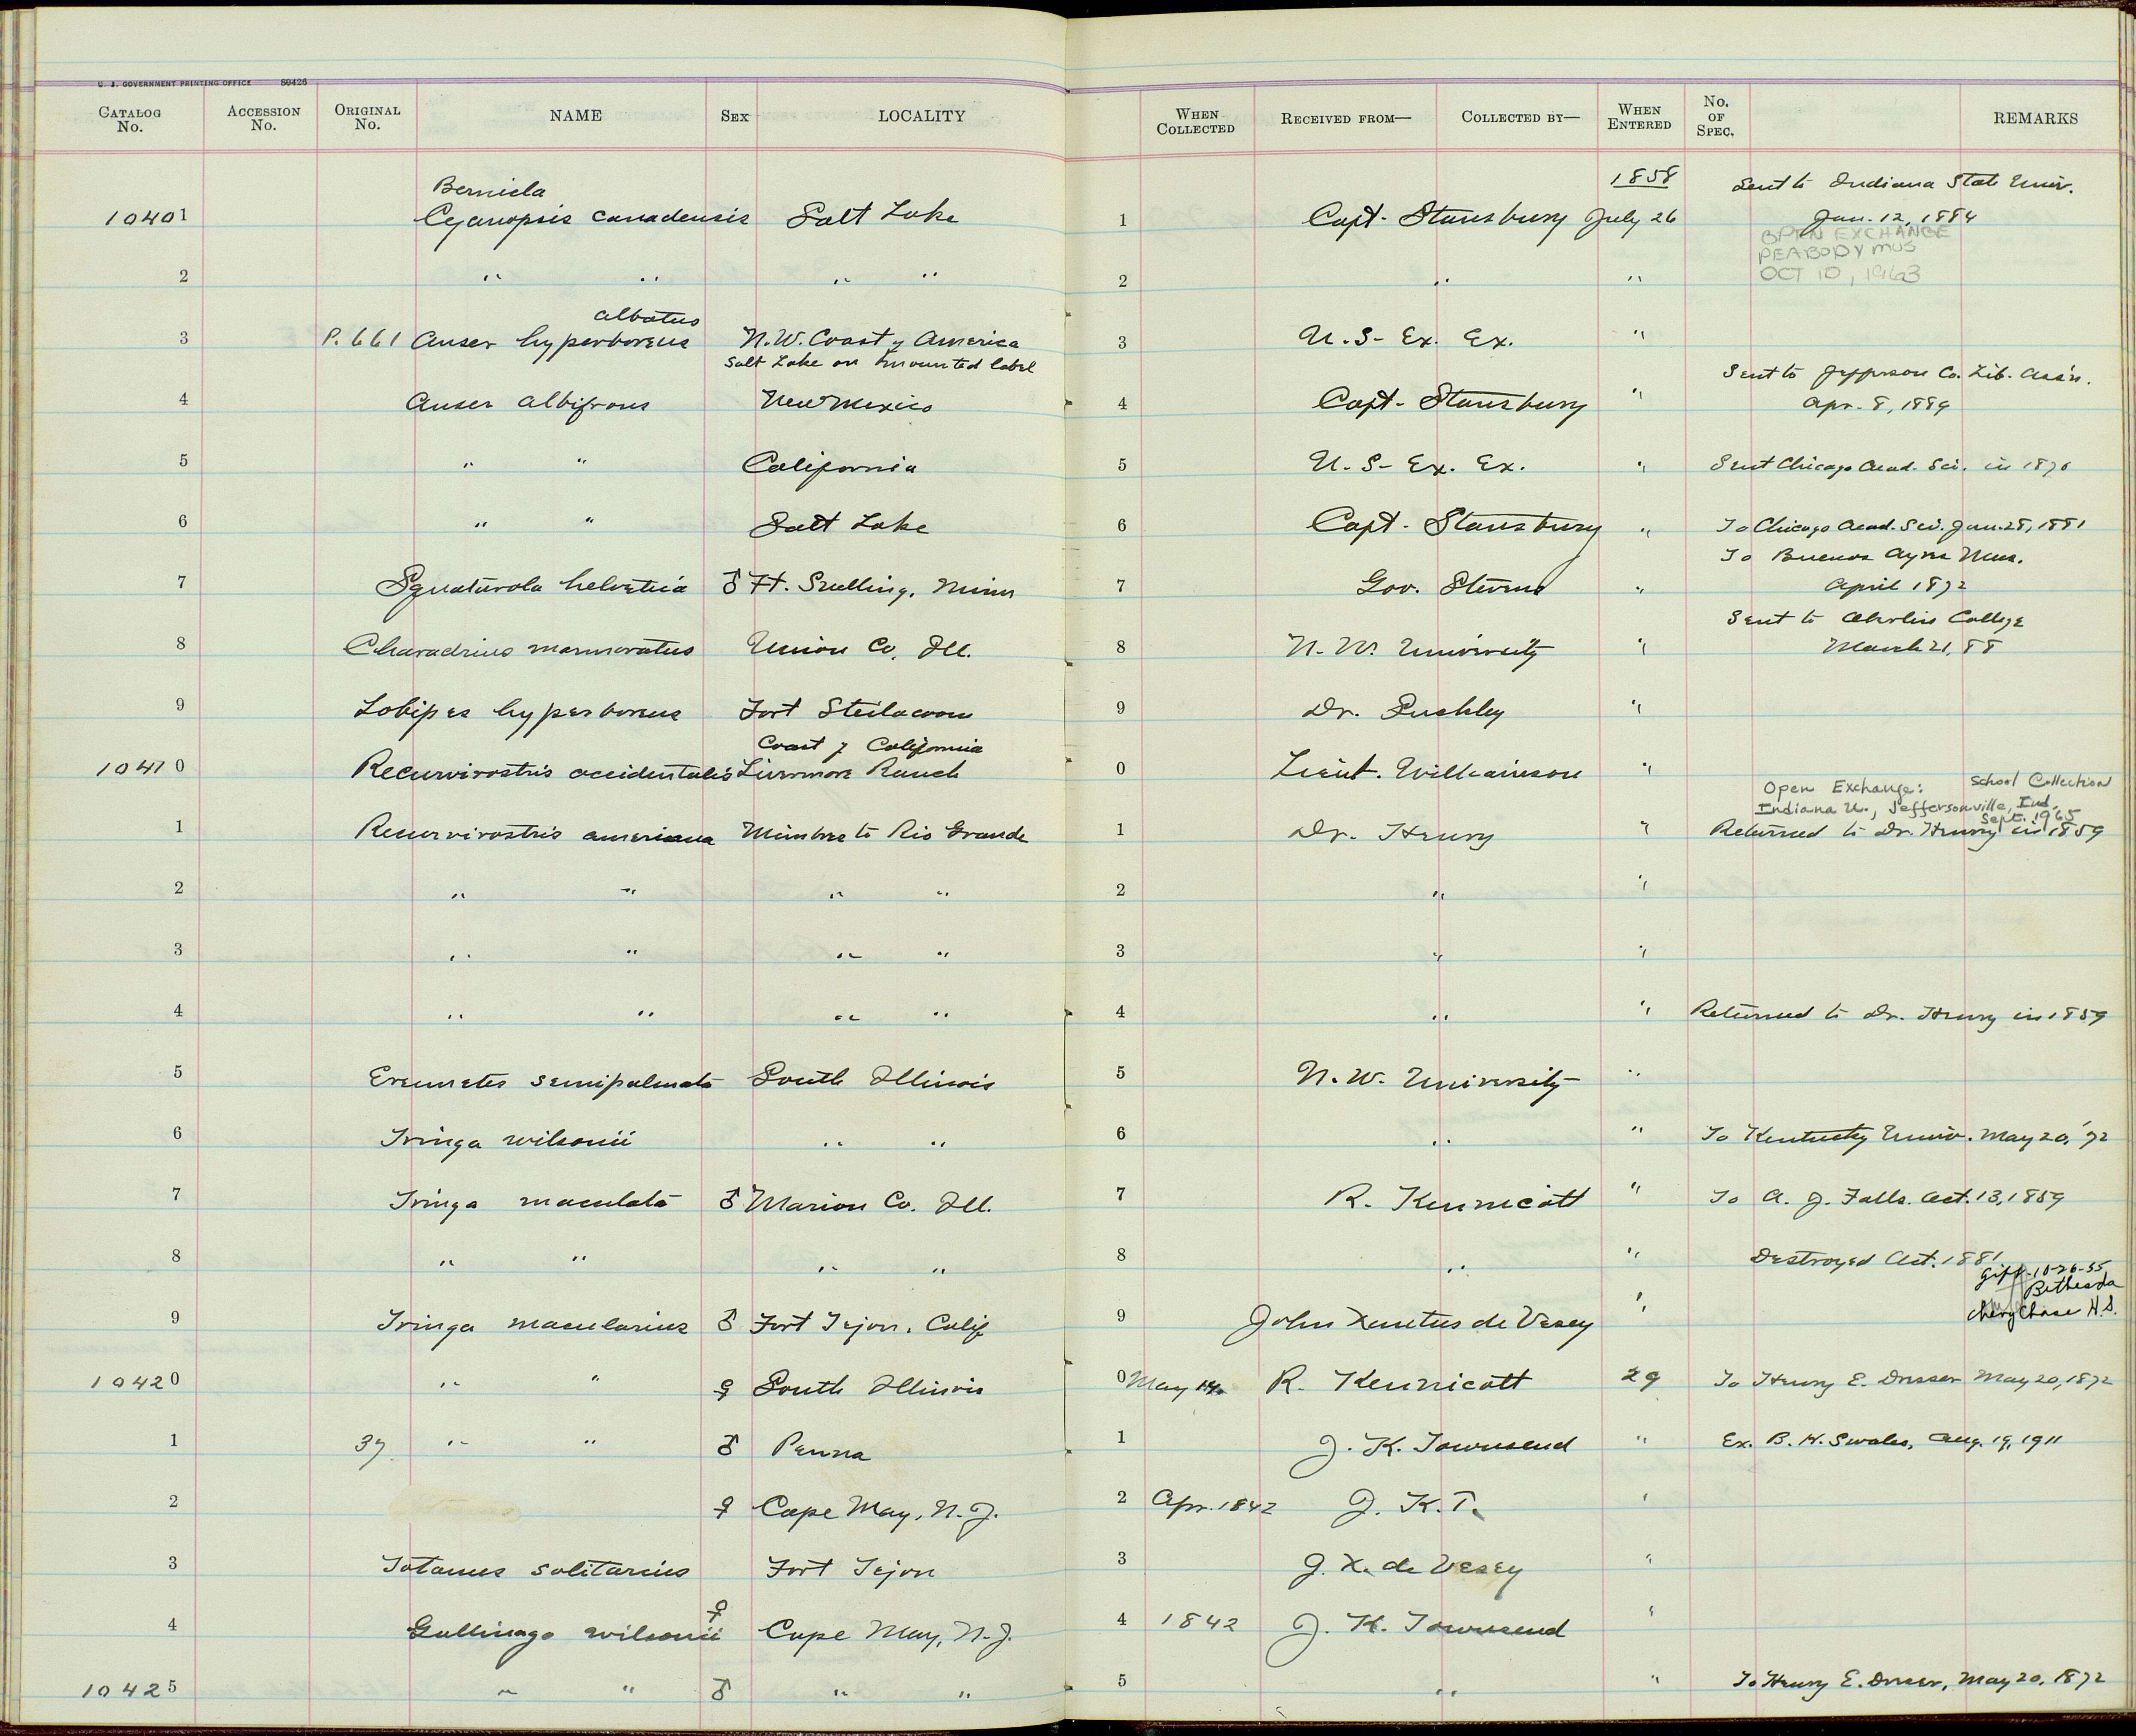 U. S. GOVERNMENT PRINTING OFFICE 80426
CATALOG No. ACCESSION No. ORIGINAL No. NAME SEX LOCALITY WHEN COLLECTED RECEIVED FROM— COLLECTED BY— WHEN ENTERED No. OF SPEC. REMARKS
Bernicla 1858 Sent to Indiana State Univ.
10401 canadensis Salt Lake 1 Capt. Stansbury July 26 Jan. 12, 1884
OPEN EXCHANGE
PEABODY MUS
2 " " " " 2 " " OCT 10, 1963
albatus
3 P. 661 Anser hyperboreus N.W. Coast of America 3 U.S. Ex. Ex. "
Salt Lake on mounted label Sent to Jefferson Co. Lib. Ass'n.
4 Anser albifrons New Mexico 4 Capt. Stansbury " Apr. 8, 1889
5 " " California 5 U.S. Ex. Ex. " Sent Chicago Acad. Sci. in 1870
6 " " Salt Lake 6 Capt. Stansbury " To Chicago Acad. Sci. Jan. 28, 1881
To Buenos Ayres Mus.
7 Squatarola helvetica ♂ Ft. Snelling, Minn 7 Gov. Stevens " April 1872
Sent to Oberlin College
8 Charadrius marmoratus Union Co. Ill. 8 N.W. University " March 21, 88
9 Lobipes hyperboreus Fort Steilacoom 9 Dr. Suckley "
Coast of California
10410 Recurvirostris occidentalis Livermore Ranch 0 Lieut. Williamson "
Open Exchange: School Collection
Indiana U., Jeffersonville, Ind.
Sept. 1965
1 Recurvirostris americana Mimbres to Rio Grande 1 Dr. Henry " Returned to Dr. Henry in 1859
2 " " " " 2 " "
3 " " " " 3 " "
4 " " " " 4 " " Returned to Dr. Henry in 1859
5 Ereunetes semipalmata South Illinois 5 N.W. University "
6 Tringa wilsonii " " 6 " " To Kentucky Univ. May 20, '72
7 Tringa maculata ♂ Marion Co. Ill. 7 R. Kennicott " To A. J. Falls. Oct. 13, 1859
8 " " " " 8 " " Destroyed Oct. 1881
Gift-10-26-55
Bethesda
Chevy Chase H.S.
9 Tringa macularius ♂ Fort Tejon, Calif 9 John Xantus de Vesey "
10420 " " ♀ South Illinois 0 May R. Kennicott 29 To Henry E. Dresser May 20, 1872
1 37 " " ♂ Penna 1 J. K. Townsend " Ex. B. H. Swales, Aug. 19, 1911
2 ♀ Cape May, N.J. 2 Apr. 1842 J. K. T. "
3 Totanus solitarius Fort Tejon 3 J. X. de Vesey "
4 Gallinago wilsonii ♀ Cape May, N.J. 4 1842 J. K. Townsend "
10425 " " ♂ " " 5 " " To Henry E. Dresser, May 20, 1872